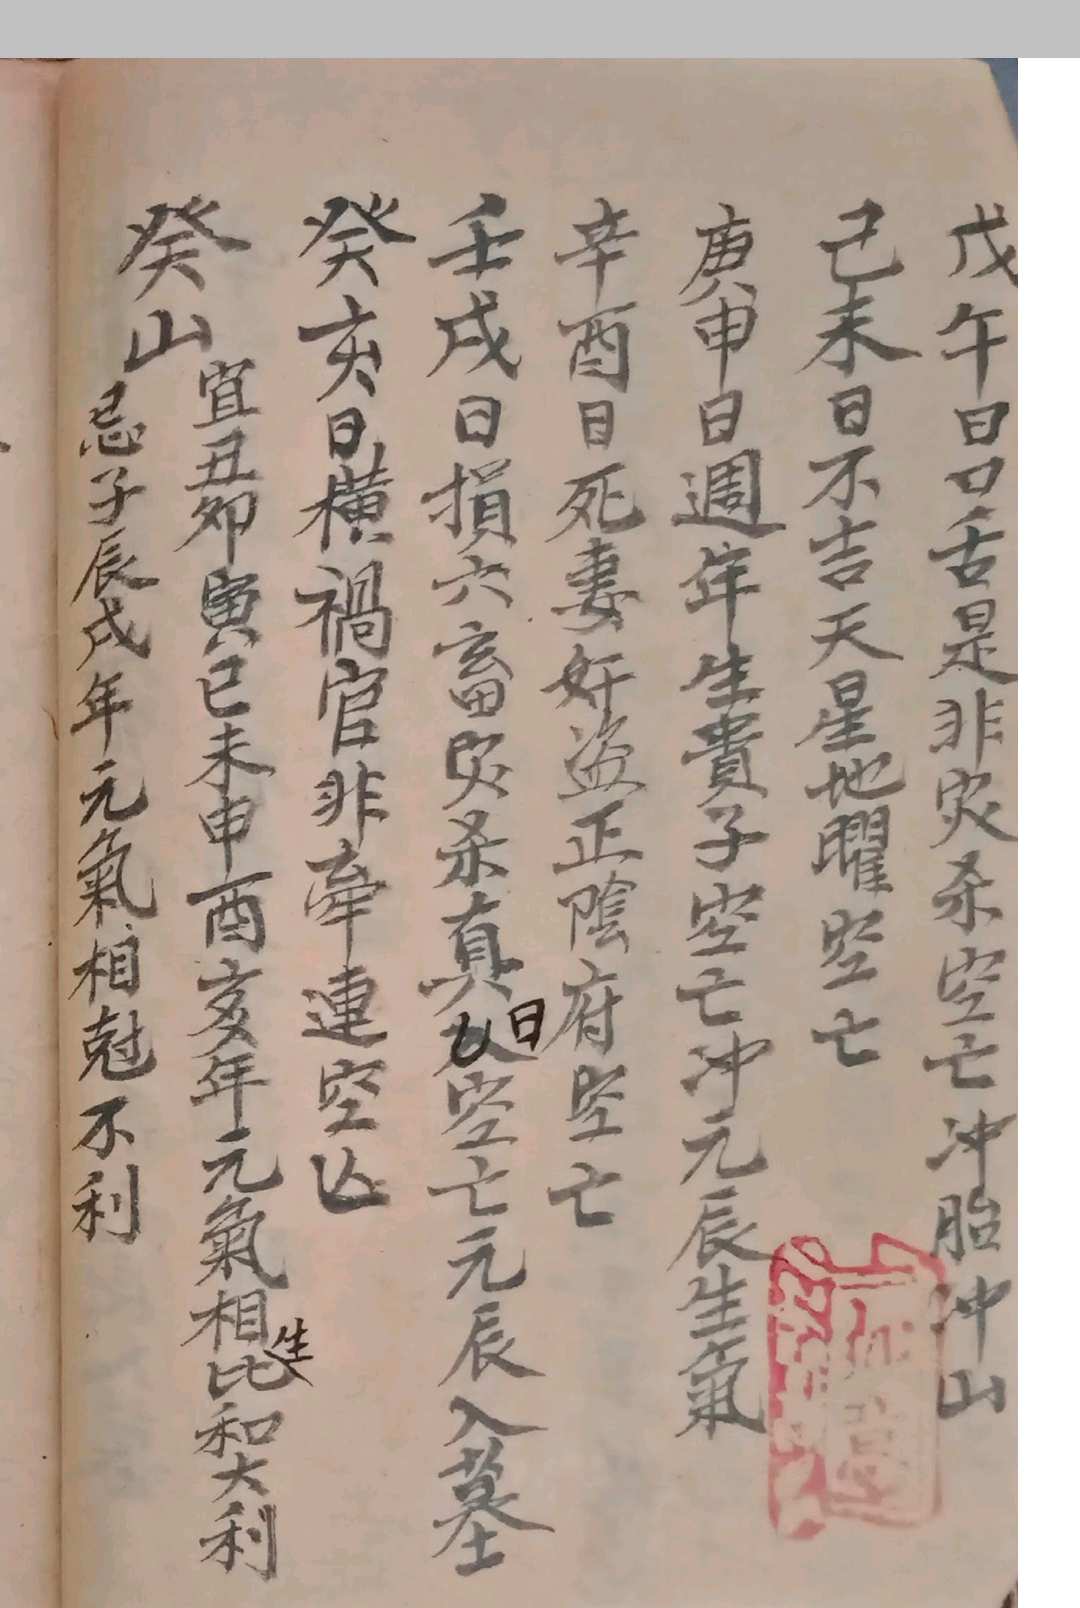 戊午日口舌是非灾杀空亡冲胎冲山
己未日不吉天星地曜空亡
庚申日週年生貴子空亡冲元辰生氣
辛酉日死妻奸盗正陰府空亡
壬戌日損六畜灾杀真日空亡元辰入墓
癸亥日横禍官非牽連空亾
癸山
宜丑卯寅巳未申酉亥年元氣相生比和大利
忌子辰戌年元氣相尅不利